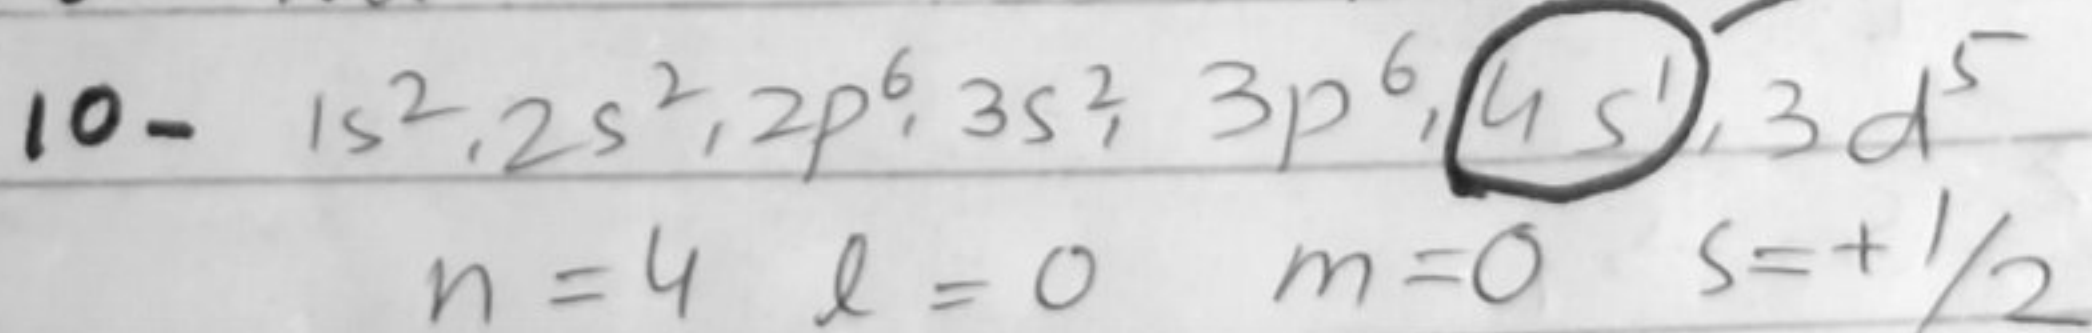 10- 1s², 2s², 2p⁶, 3s², 3p⁶, 4s¹, 3d⁵
n = 4 l = 0 m = 0 s = + 1/2